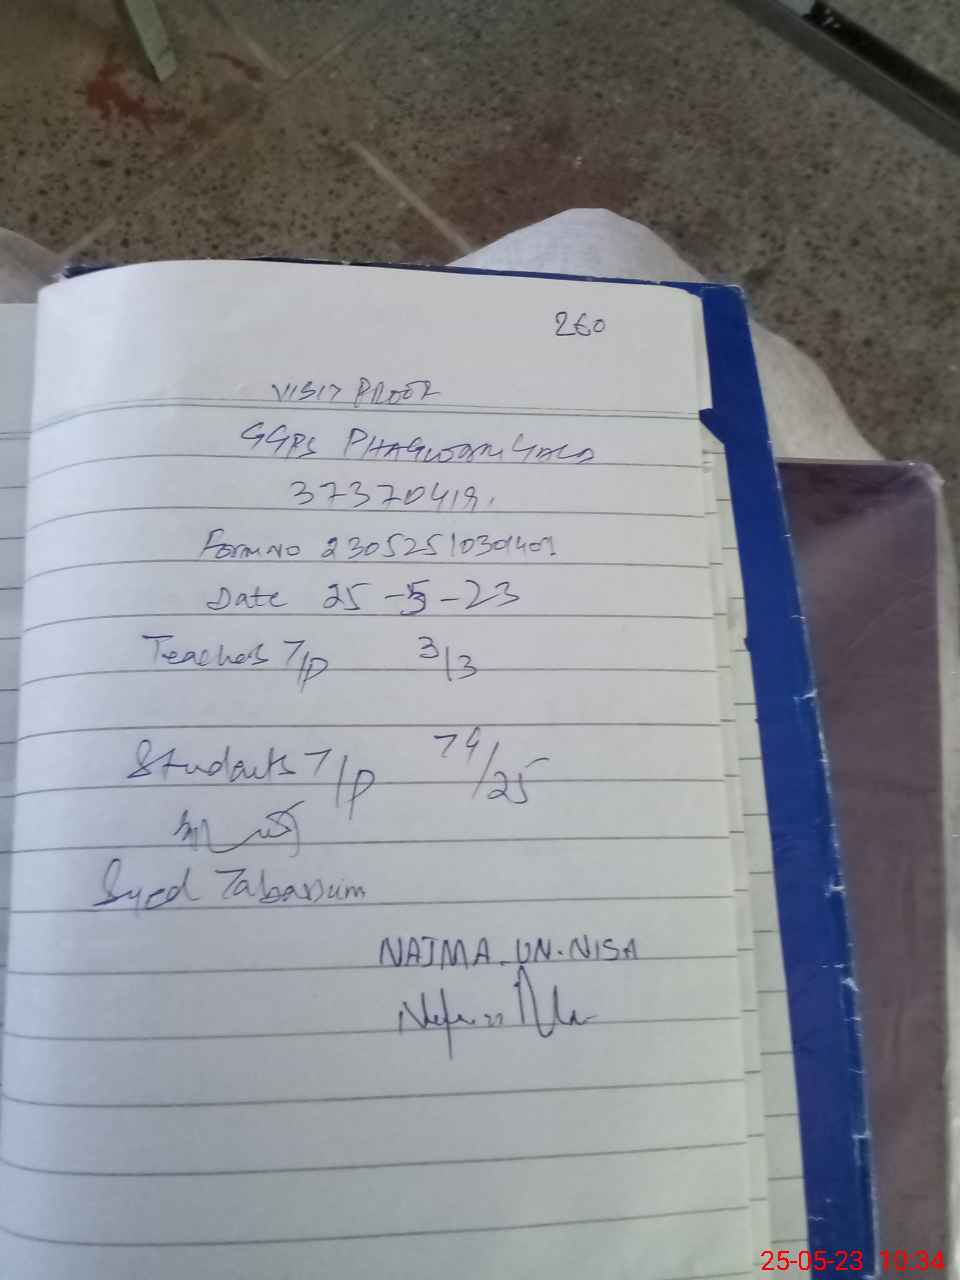 260
VISIT PROOF
GGPS
37370419.
Form No 2305251030
Date 25-5-23
Teachers T/P 3/3
Students T/P 74/25
Syed Tabassum
NAJMA.UN.NISA
25-05-23 10:34